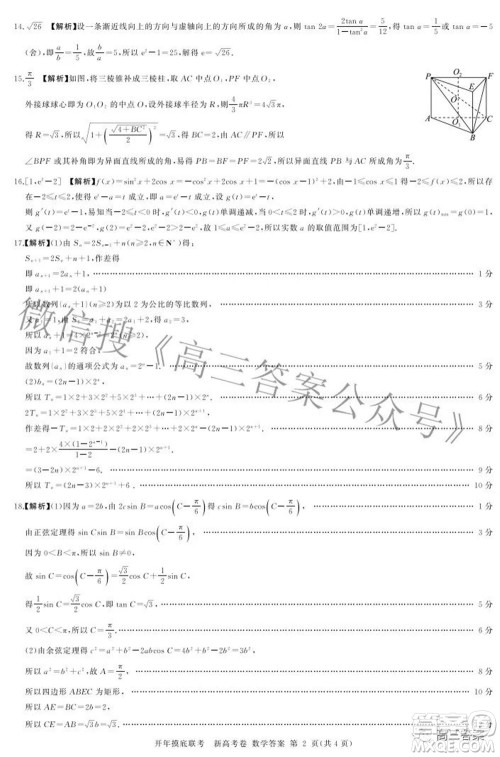 14.√26 【解析】设一条渐近线向上的方向与虚轴向上的方向所成的角为α,则tan 2α=2tan α/(1-tan²α)=5/12,得tan α=1/5或tan α=-5
(舍),即a/b=1/5,故b²/a²=e²-1=25,解得e=√26.
15.π/3 【解析】如图,将三棱锥补成三棱柱,取AC中点O₁,PF中点O₂,
外接球球心即为O₁O₂的中点O,设外接球半径为R,则4/3πR³=4√3π,
得R=√3,所以√(1+(√(4+BC²)/2)²)=√3,得BC=2,由AC∥PF,所以
∠BPF或其补角即为异面直线所成的角,易得PB=BF=PF=2√2,所以异面直线PB与AC所成角为π/3.
16.[1,e²-2] 【解析】f(x)=sin²x+2cos x=-cos²x+2cos x+1=-(cos x-1)²+2,由-1≤cos x≤1得-2≤f(x)≤2,所以存
在-2≤t≤2,使得eᵗ-a=t成立,即a=eᵗ-t成立,设g(t)=eᵗ-t,
则g′(t)=eᵗ-1,易知当-2≤t<0时,g′(t)<0,g(t)单调递减,当0<t≤2时,g′(t)>0,g(t)单调递增,所以g(t)min=g(0)=1.
17.【解析】(1)由Sₙ=2Sₙ₋₁+n(n≥2,n∈N*)得:
Sₙ₊₁=2Sₙ+n+1,作差得
即aₙ₊₁=2aₙ+1, 1分
即aₙ₊₁+1=2(aₙ+1)
所以数列{aₙ+1}(n≥2)为以2为公比的等比数列,
因为a₁+1=2符合,
故数列{aₙ}的通项公式为aₙ=2ⁿ-1.
(2)bₙ=(2n-1)×2ⁿ,
所以Tₙ=1×2+3×2²+5×2³+…+(2n-1)×2ⁿ,
2Tₙ=1×2²+3×2³+5×2⁴+…+(2n-1)×2ⁿ⁺¹,
=2+2×4×(1-2ⁿ⁻¹)/(1-2)-(2n-1)×2ⁿ⁺¹
=(3-2n)×2ⁿ⁺¹-6. 9分
所以Tₙ=(2n-3)×2ⁿ⁺¹+6. 10分
18.【解析】(1)因为a=2b,由2csin B=acos(C-π/6)得csin B=bcos(C-π/6), 1分
由正弦定理得sin Csin B=sin Bcos(C-π/6),
因为0<B<π,所以sin B≠0,
故sin C=cos(C-π/6)=√3/2cos C+1/2sin C,
得1/2sin C=√3/2cos C,即tan C=√3, 5分
又0<C<π,故C=π/3. 6分
(2)由余弦定理得c²=a²+b²-2abcos C=4b²+b²-2b²=3b²,
所以a²=b²+c²,故A=π/2, 8分
所以四边形ABEC为矩形.
微信搜《高三答案公众号》
开年摸底联考 新高考卷 数学答案 第2页(共4页)
高三答案